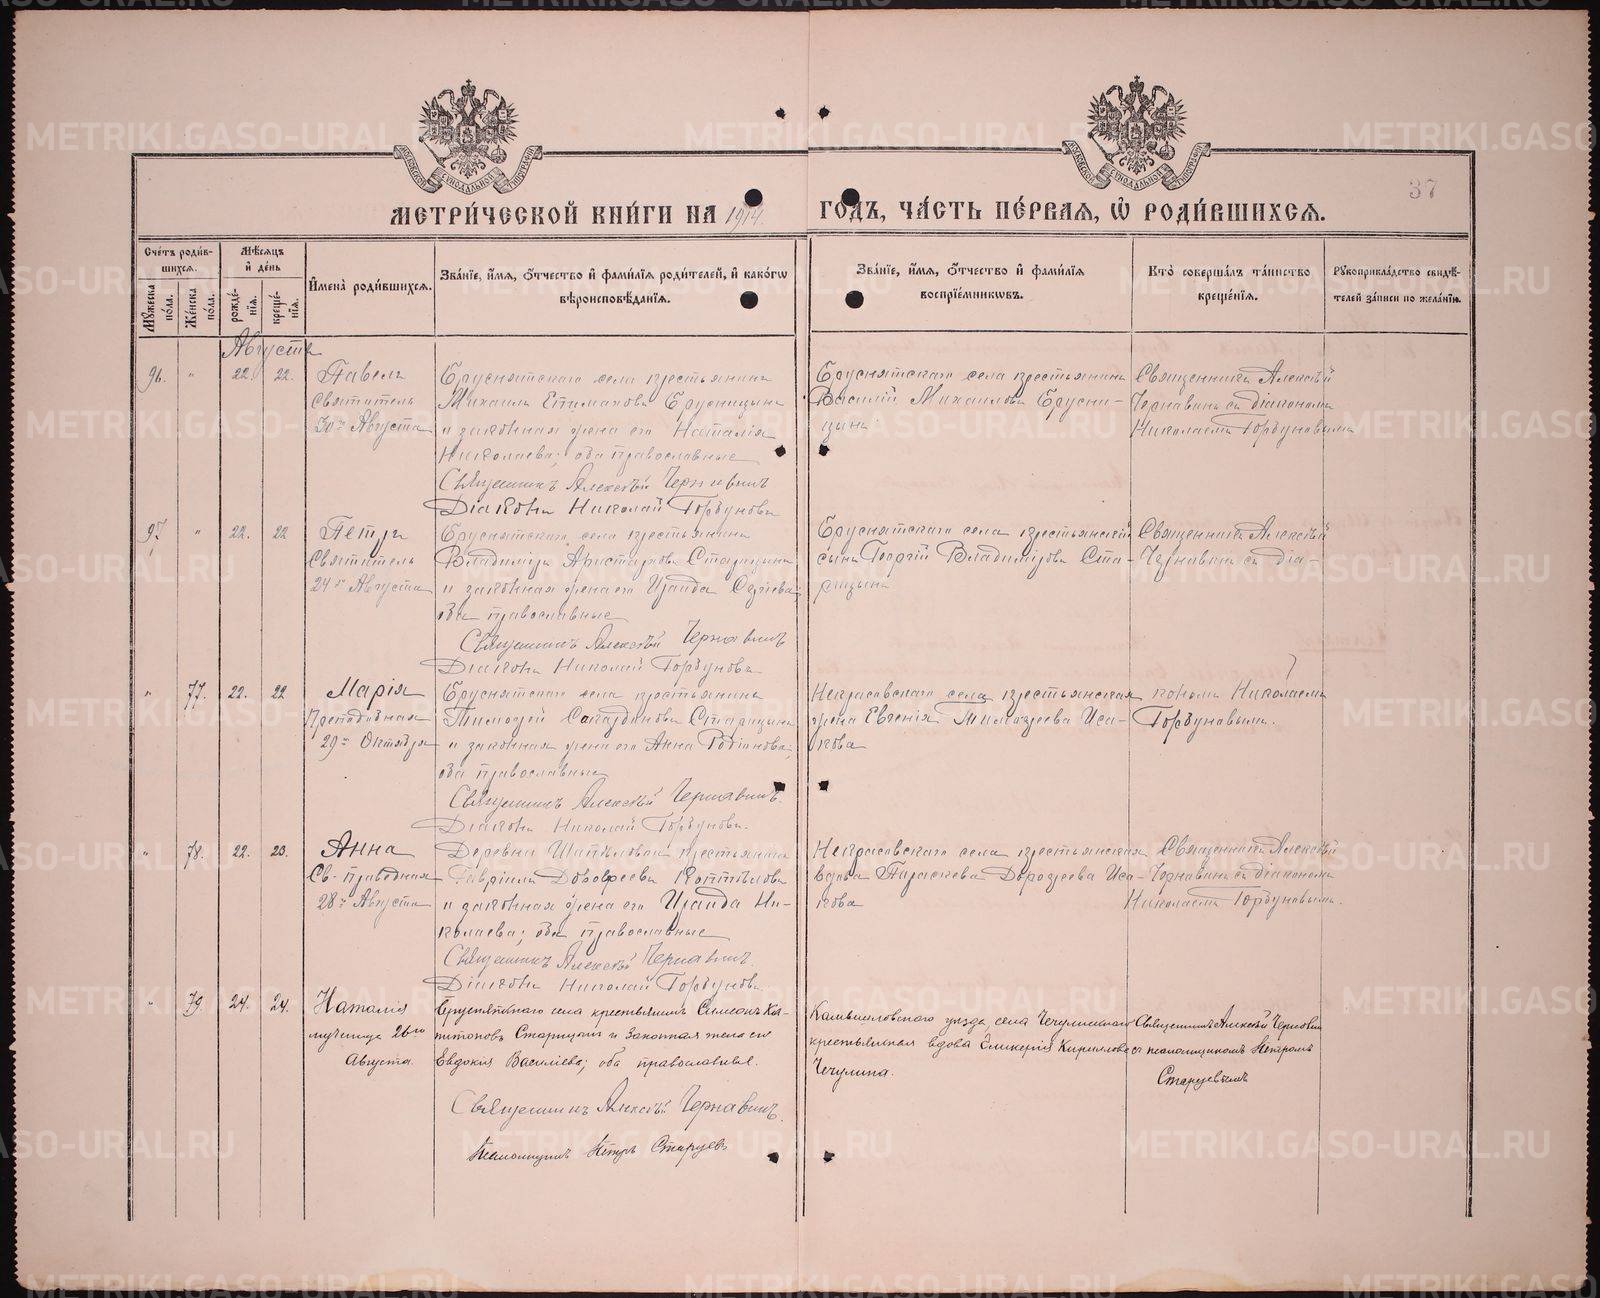 37
МЕТРИ́ЧЕСКОЙ КНИ́ГИ НА 1914 ГОДЪ, ЧА́СТЬ ПЕ́РВАЯ, Ѡ РОДИ́ВШИХСЯ.
Сче́тъ роди́в-
шихся.
Му́жеска по́ла.
Же́нска по́ла.
Мѣ́сяцъ и де́нь
рожде́-
нїя.
креще́-
нїя.
Имена̀ роди́вшихся.
Зва́нїе, и́мя, о́тчество и фами́лїя роди́телей, и како́гѡ
вѣроисповѣ́данїя.
Зва́нїе, и́мя, о́тчество и фами́лїя
воспрїе́мникѡвъ.
Кто̀ соверша́лъ та́инство
креще́нїя.
Рукоприкла́дство свидѣ́-
телей за́писи по жела́нїю.
Августа
96. " 22. 22. Павелъ
Святитель
30го Августа
Бруснятскаго села крестьянинъ
Михаилъ Епимаховъ Брусницынъ
и законная жена его Наталія
Николаева; оба православные
Священникъ Алексѣй Чернавинъ
Діаконъ Николай Горбуновъ
Бруснятскаго села крестьянинъ
Василій Михаиловъ Брусни-
цынъ
Священникъ Алексѣй
Чернавинъ съ діакономъ
Николаемъ Горбуновымъ
97 " 22. 22 Петръ
Святитель
24го Августа
Бруснятскаго села крестьянинъ
Владиміръ Аристарховъ Старицынъ
и законная жена его Ираида
оба православные
Священникъ Алексѣй Чернавинъ
Діаконъ Николай Горбуновъ
Бруснятскаго села крестьянскій
сынъ Георгій Владиміровъ Ста-
рицынъ
Священникъ Алексѣй
Чернавинъ съ діа-
" 77. 22. 22 Марія
Преподобная
29го Октября
Бруснятскаго села крестьянинъ
Тимофей Старицынъ
и законная жена его Анна Родіонова,
оба православные
Священникъ Алексѣй Чернавинъ.
Діаконъ Николай Горбуновъ.
Некрасовскаго села крестьянская
жена Евгенія Тимофеева Иса-
кова
кономъ Николаемъ
Горбуновымъ.
" 78. 22. 23. Анна
Св. праведная
28го Августа
Деревни крестьянинъ
Гавріилъ Котѣловъ
и законная жена его Ираида Ни-
колаева; оба православные
Священникъ Алексѣй Чернавинъ.
Діаконъ Николай Горбуновъ
Некрасовскаго села крестьянская
вдова Параскева Дорофеева Иса-
кова
Священникъ Алексѣй
Чернавинъ съ діакономъ
Николаемъ Горбуновымъ.
" 79. 24. 24. Наталія
мученица 26го
Августа.
Бруснятскаго села крестьянинъ Симеонъ Ка-
питоновъ Старицынъ и законная жена его
Евдокія Василіева, оба православные.
Священникъ Алексѣй Чернавинъ.
Псаломщикъ Петръ Старцевъ
Камышловскаго уѣзда, села Чечулинскаго
крестьянская вдова Гликерія Кириллова
Чечулина.
Священникъ Алексѣй Чернавинъ
съ псаломщикомъ Петромъ
Старцевымъ
METRIKI.GASO-URAL.RU